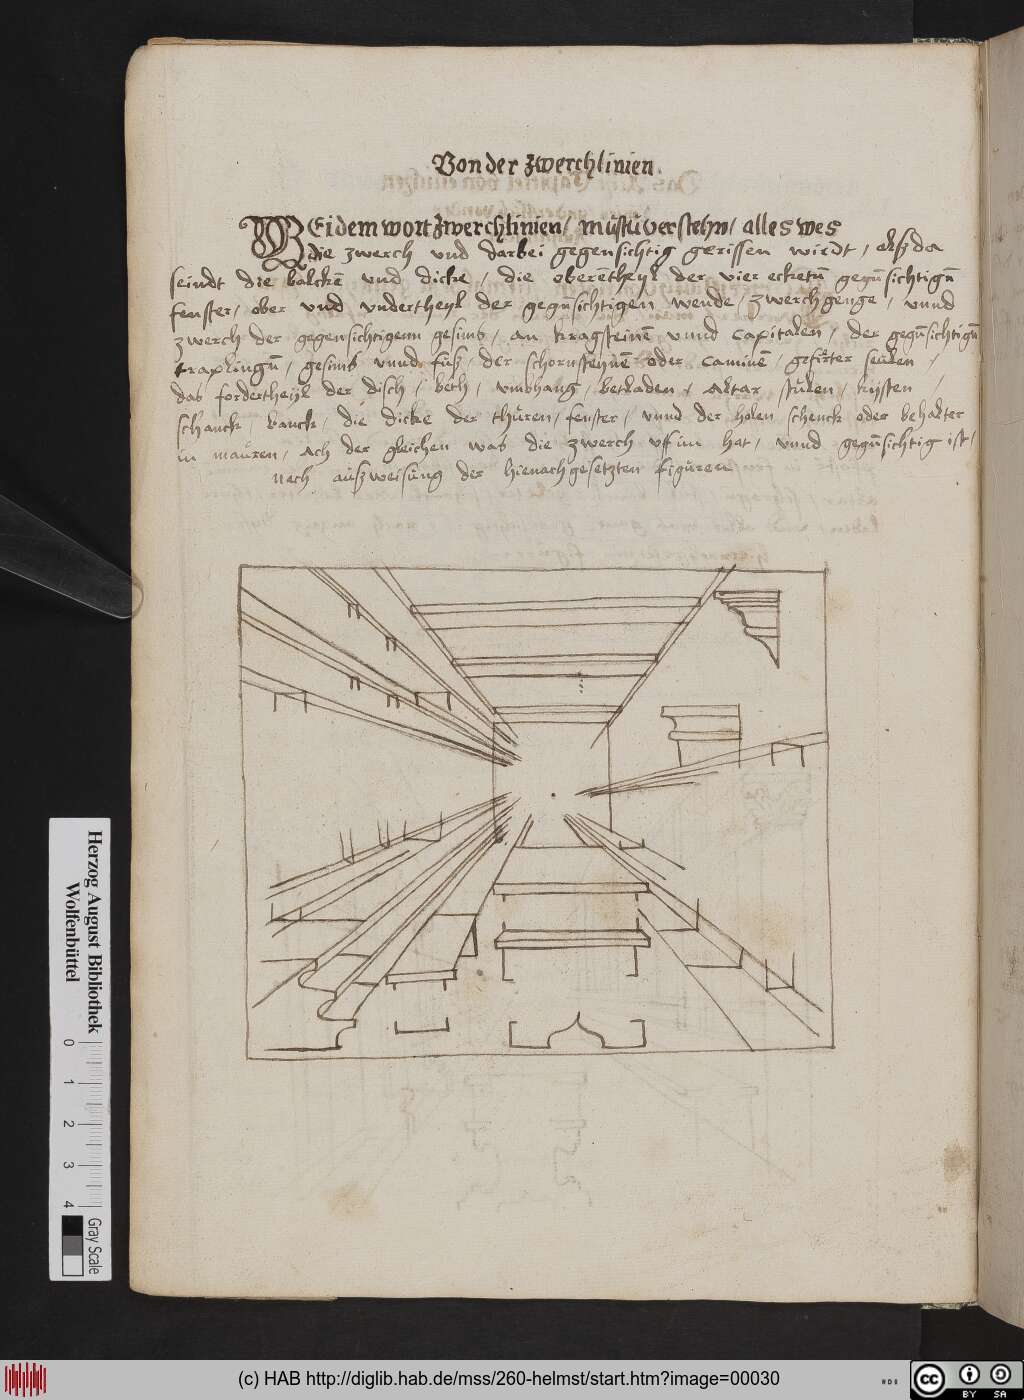 Von der zwerchlinien.
BEi dem wort zwerchlinien / mustu verstehn / alles wes
die zwerch vnd darbei gegensichtig gerissen wirdt / alsz da
seindt die balckē vnd dicke / die oberētheyl der vier ecketn̄ gegn̄sichtign̄
fenster / ober vnd vndertheyl der gegn̄sichtigen wende / zwerchgenge / vnnd
zwerch der gegensichtigenn gesims / an kragsteinē vnnd capitalen / der gegn̄sichtign̄
traplingn̄ / gesims vnnd füsz / der schornsteynē oder caminē / gefirter seulen /
das fordertheyl der disch / beth / vmbhang / betladen / Altar stülen / kysten /
schanck banck / die dicke der thüren / fenster / vnnd der holen schenck oder behalter
in mauren / Ach der gleichen was die zwerch vff im hat / vnnd gegn̄sichtig ist /
nach auszweisung der hienachgesetzten figuren
Herzog August Bibliothek
Wolfenbüttel
0 1 2 3 4
Gray Scale
(c) HAB http://diglib.hab.de/mss/260-helmst/start.htm?image=00030
cc BY SA